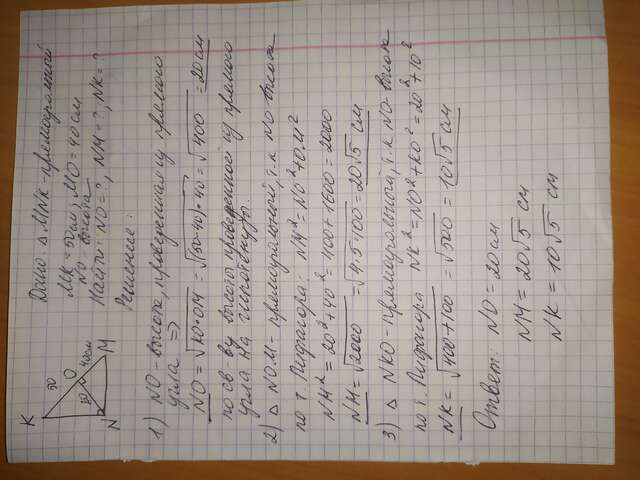 Дано: Δ MNK - прямоугольный
MK = 50 см, MO = 40 см
NO - высота
Найти: NO = ?, NM = ?, NK = ?
K
50
O
40см
N
M
Решение:
1) NO - высота, проведенная из прямого
угла =>
NO = √KO·OM = √(50-40)·40 = √400 = 20 см
по св-ву высоты проведенной из прямого
угла на гипотенузу.
2) Δ NOM - прямоугольный, т.к NO высота
по т. Пифагора: NM² = NO² + OM²
NM² = 20² + 40² = 400 + 1600 = 2000
NM = √2000 = √4·5·100 = 20√5 см
3) Δ NKO - прямоугольный, т.к NO - высота
по т. Пифагора NK² = NO² + KO² = 20² + 10²
NK = √400 + 100 = √500 = 10√5 см
Ответ: NO = 20 см
NM = 20√5 см
NK = 10√5 см